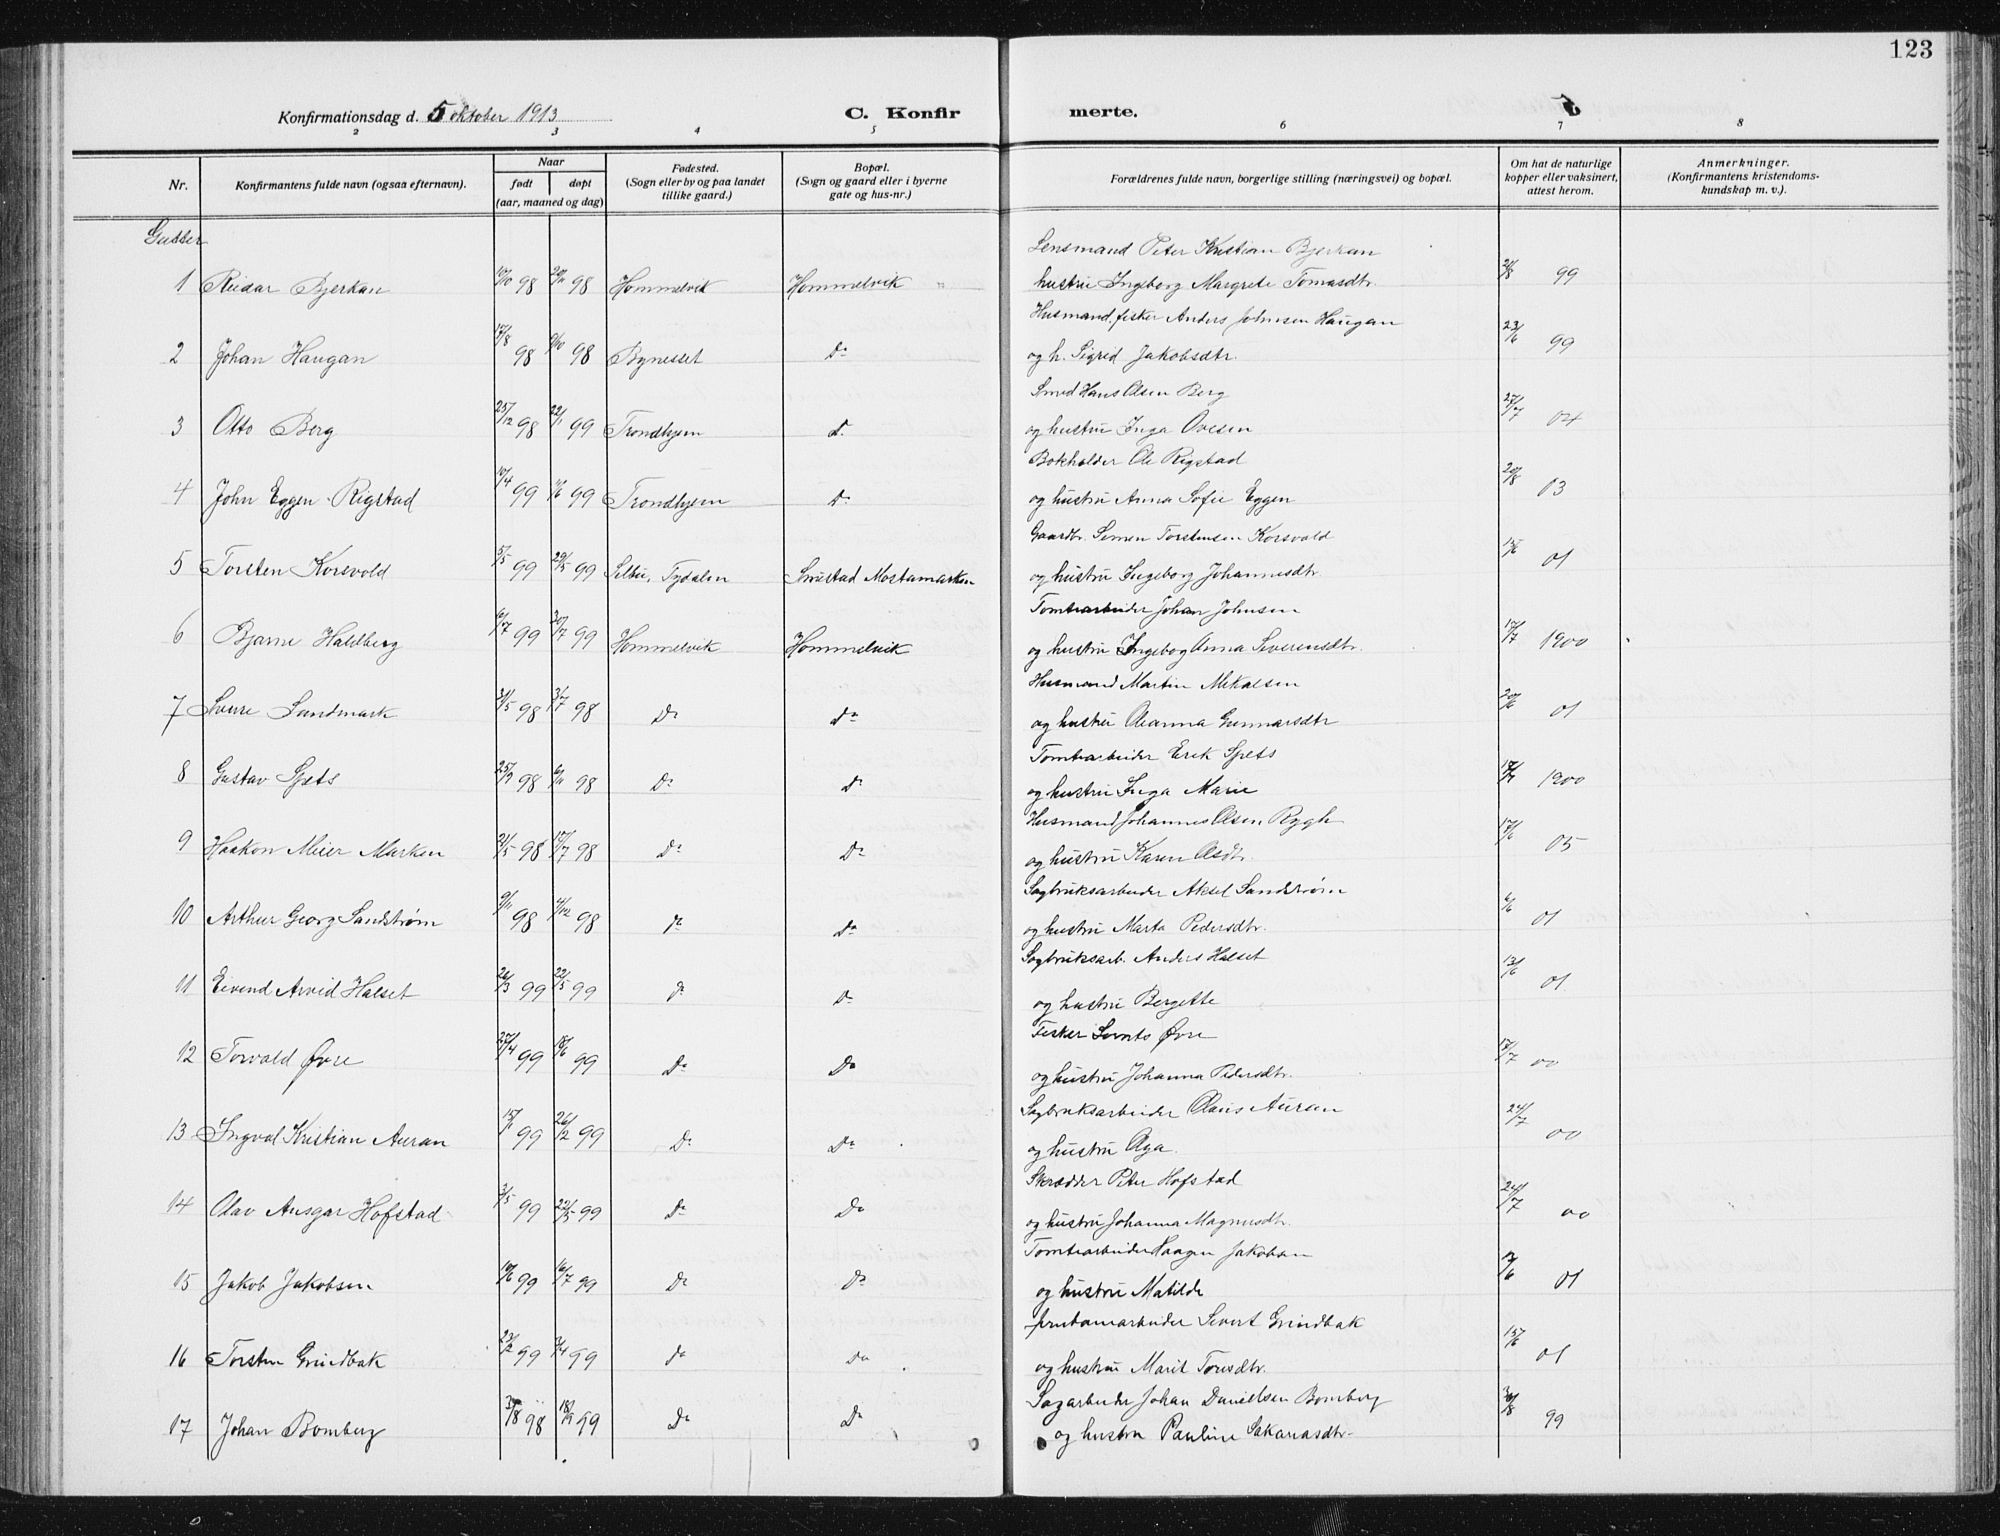 123
Konfirmationsdag d. 5 oktober 1913
C. Konfirmerte.
2 3 4 5 6 7 8
Nr. Konfirmantens fulde navn (ogsaa efternavn). Naar født døpt (aar, maaned og dag) Fødested. (Sogn eller by og paa landet tillike gaard.) Bopæl. (Sogn og gaard eller i byerne gate og hus-nr.) Forældrenes fulde navn, borgerlige stilling (næringsvei) og bopæl. Om hat de naturlige kopper eller vaksinert, attest herom. Anmerkninger. (Konfirmantens kristendoms-kundskap m. v.).
Gutter
Lensmand Peter Kristian Bjerkan
1 Reidar Bjerkan 98 98 Hommelvik Hommelvik hustru Ingeborg Margrete Tomasdtr. 99
Husmand, fisker Anders Johnsen Haugan
2 Johan Haugan 17/8 98 9/10 98 Bynesset Do og h. Sigrid Jakobsdtr. 23/6 99
Smed Hans Olsen Berg
3 Otto Berg 25/12 98 22/1 99 Trondhjem Do og hustru Inga Ovesen 27/7 04
Bokholder Ole Rigstad
4 John Eggen Rigstad 10/4 99 11/6 99 Trondhjem Do og hustru Anna Sofie Eggen 20/8 03
Gaardbr. Simen Torstensen Korsvold
5 Torsten Korsvold 5/5 99 29/5 99 Selbu, Tydalen Smustad Mostamarken og hustru Ingeborg Johannesdtr. 15/6 01
Tomtearbeider Johan Johnsen
6 Bjarne Haldberg 6/7 99 30/7 99 Hommelvik Hommelvik og hustru Ingeborg Anna Severensdtr. 17/7 1900
Husmand Martin Mikalsen
7 Sverre Sandmark 31/5 98 3/7 98 Do Do og hustru Oleanna Gunnarsdtr 20/6 01
Tomtearbeider Erik Spets
8 Gustav Spets 25/9 98 6/11 98 Do Do og hustru Inga Marie 17/7 1900
Husmand Johannes Olsen Rygh
9 Haakon Meier Marken 21/5 98 17/7 98 Do Do og hustru Karen Olsdtr. 17/6 05
Sagbruksarbeider Aksel Sandstrøm
10 Arthur Georg Sandstrøm 9/11 98 4/12 98 Do Do og hustru Marta Pedersdtr. 6/6 01
Sagbruksarb. Anders Halset
11 Eivend Arvid Halset 26/3 99 22/5 99 Do Do og hustru Bergette 13/6 01
Fisker Øvre
12 Torvald Øvre 27/4 99 18/6 99 Do Do og hustru Johanna Pedersdtr. 17/7 00
Sagbruksarbeider Olaus Auran
13 Ingval Kristian Auran 15/1 99 26/2 99 Do Do og hustru Aga. 24/7 00
Skrædder Peter Hofstad
14 Olav Ansgar Hofstad 3/5 99 22/5 99 Do Do og hustru Johanna Magnusdtr. 24/7 00
Tomtearbeider Haagen Jakobsen
15 Jakob Jakobsen 10/6 99 16/7 99 Do Do og hustru Matilde 01
Jernbanearbeider Sivert Grindbak
16 Torsten Grindbak 23/2 99 3/4 99 Do Do og hustru Marit Toresdtr. 15/6 01
Sagarbeider Johan Danielsen Bomberg
17 Johan Bomberg 98 18/9 99 Do Do og hustru Pauline Sakariasdtr. 30/8 99